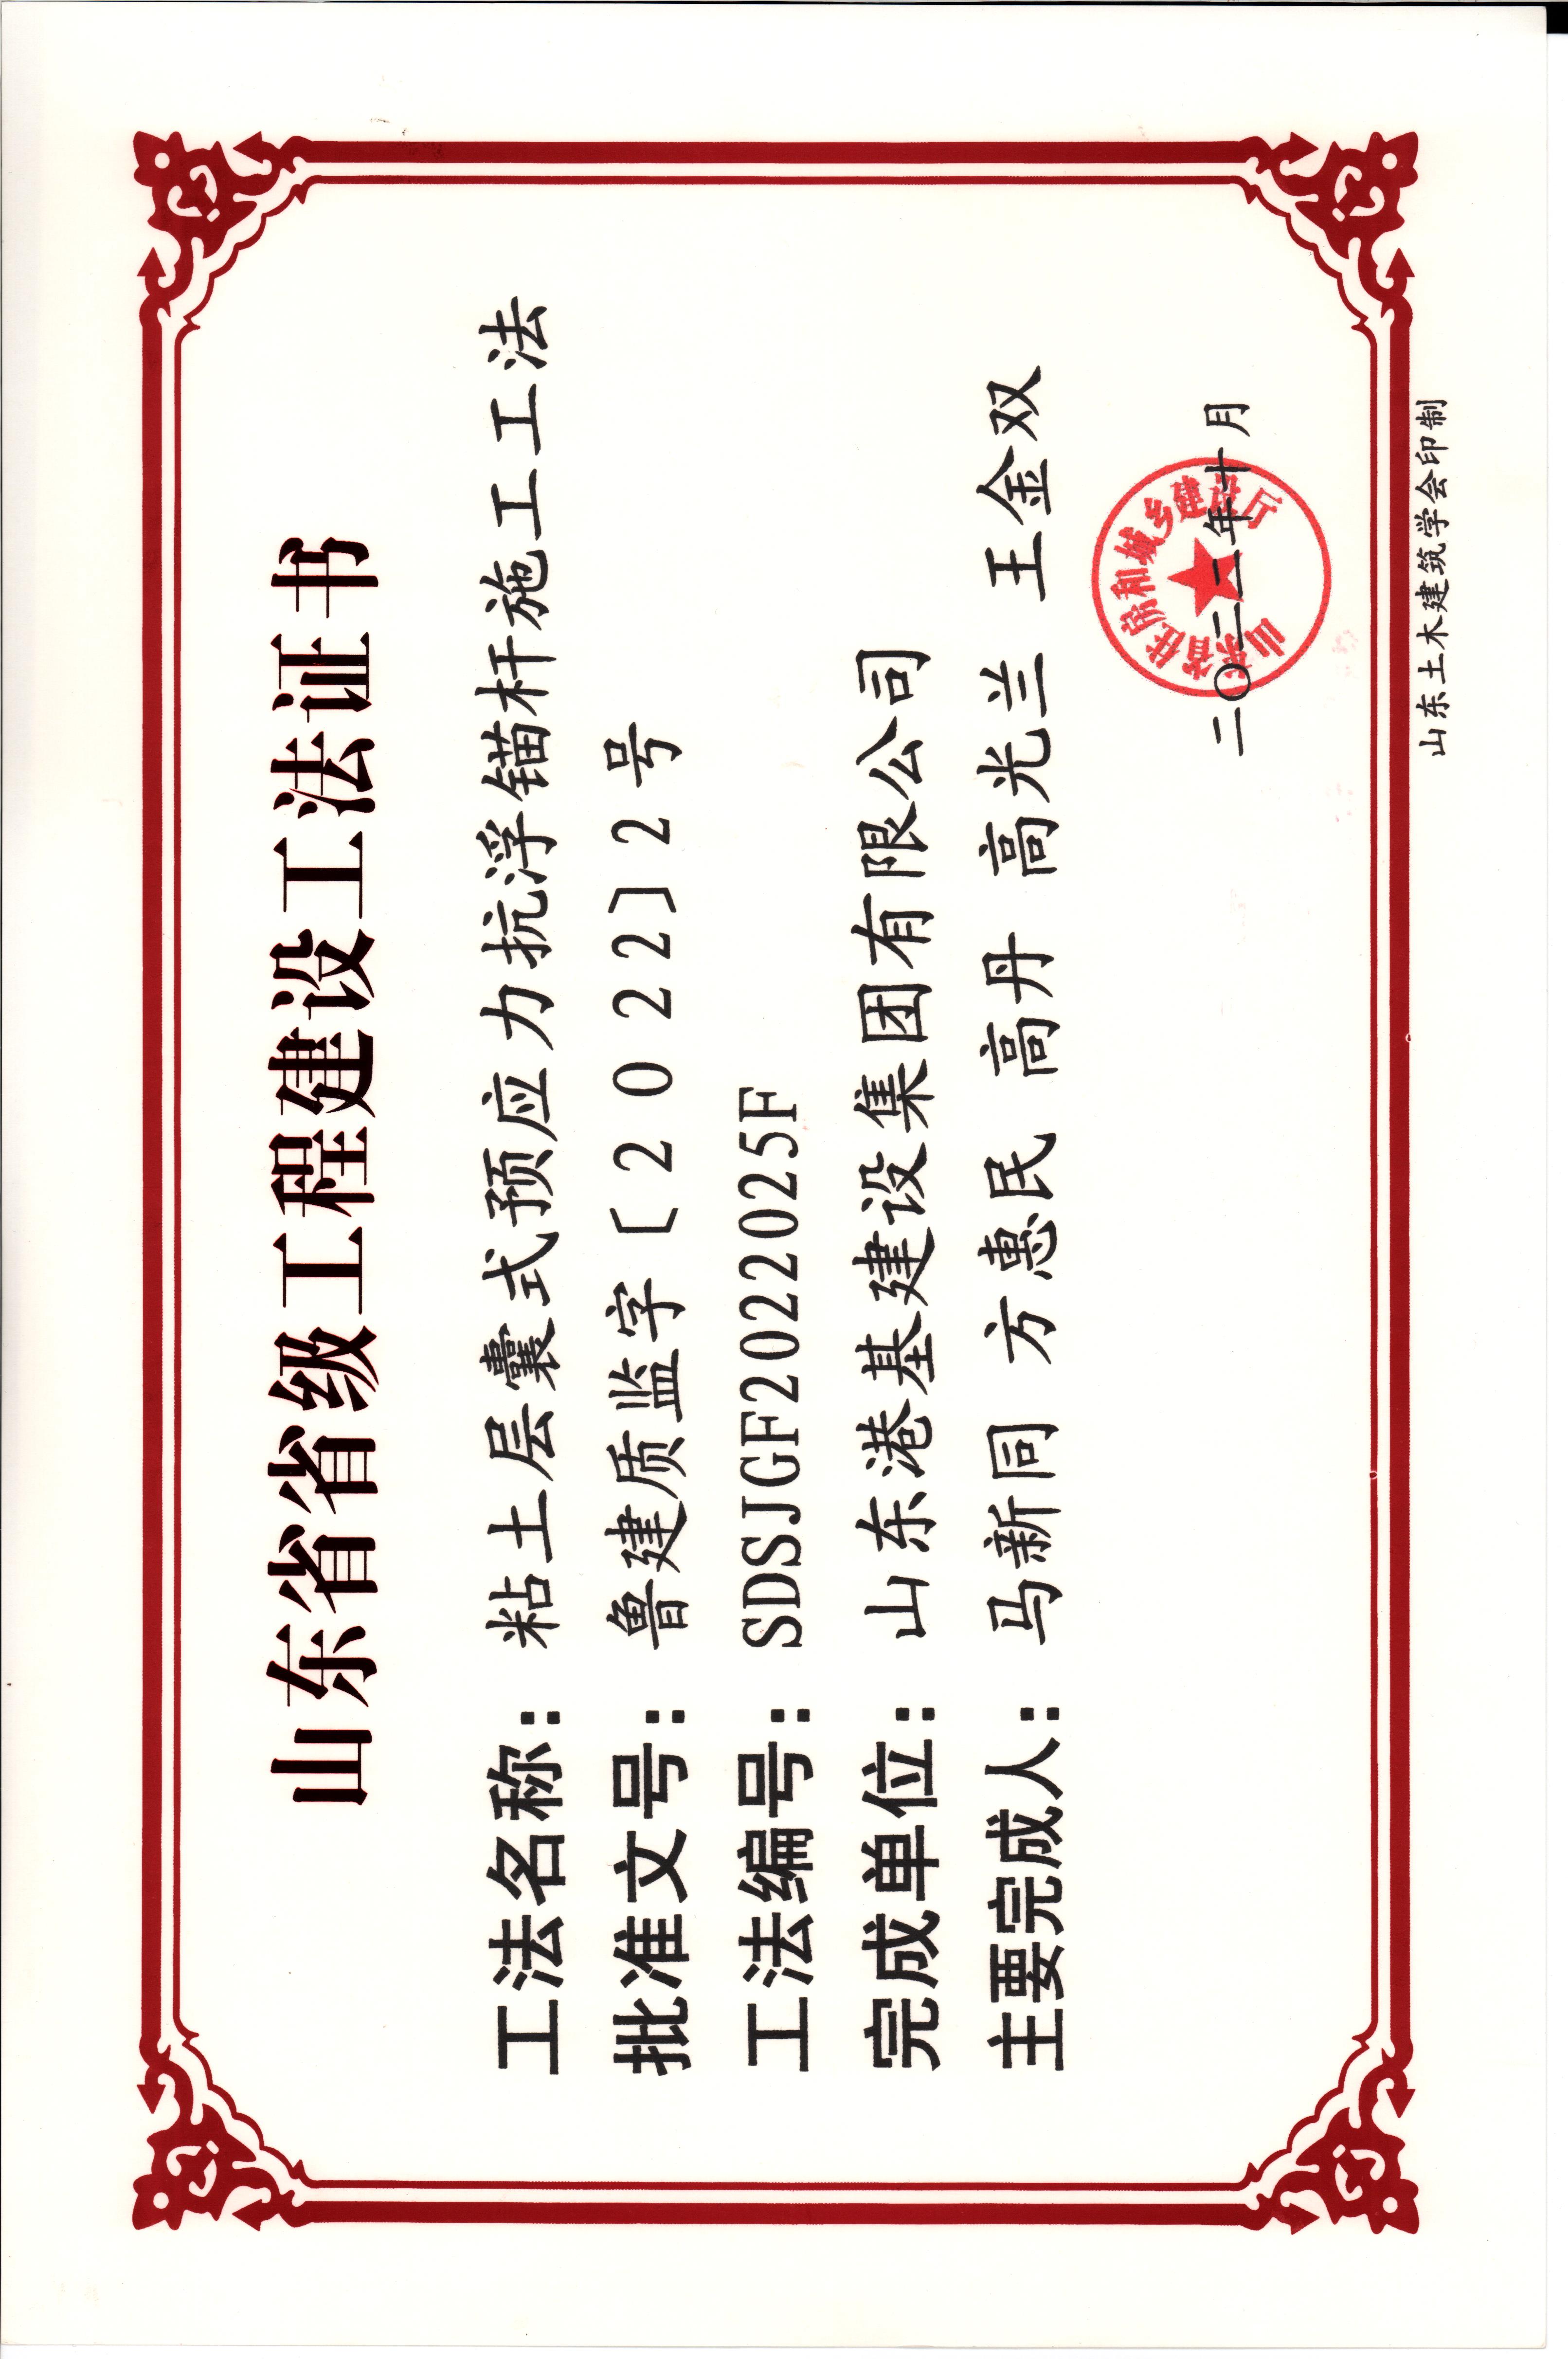 山东省省级工程建设工法证书
工法名称：粘土层囊式预应力抗浮锚杆施工工法
批准文号：鲁建质监字〔2022〕2号
工法编号：SDSJGF2022025F
完成单位：山东港基建设集团有限公司
主要完成人：马新同 方惠民 高丹 高光兰 王金双
山东省住房和城乡建设厅
二〇二二年十月
山东土木建筑学会印制